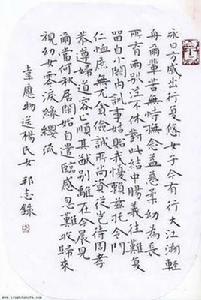 永日方戚戚出行復悠悠女子今有行大江溯輕
舟爾輩苦無恃撫念益慈柔幼為長
所育兩別泣不休對此結中腸義往難復
留自小闕內訓事姑貽我憂賴茲托令門
仁恤庶無尤貧儉誠所尚資從豈待周孝
恭遵婦道容止順其猷別離在今晨見
爾當何秋居閑始自遣臨感忽難收歸來
視幼女零淚緣纓流
韋應物送楊氏女 志錄